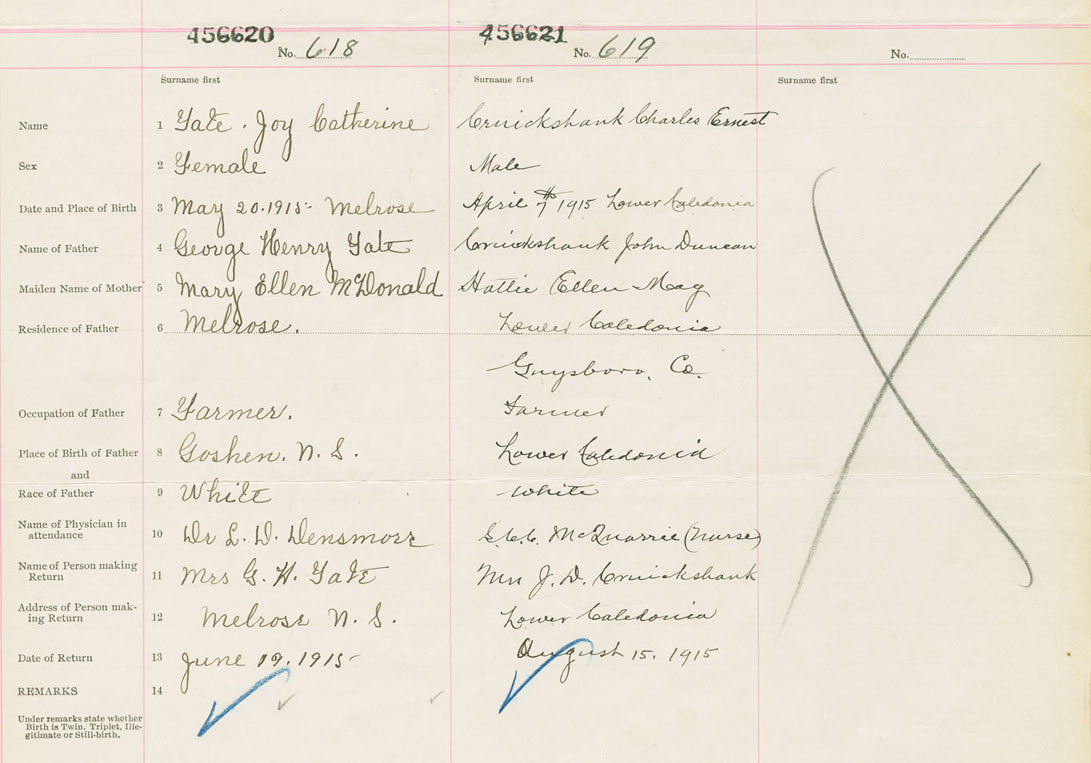 456620 456621
No. 618 No. 619 No.
Surname first Surname first Surname first
Name 1 Tate. Joy Catherine Cruickshank Charles Ernest
Sex 2 Female Male
Date and Place of Birth 3 May 20.1915 Melrose April 7th 1915 Lower Caledonia
Name of Father 4 George Henry Tate Cruickshank John Duncan
Maiden Name of Mother 5 Mary Ellen McDonald Hattie Ellen May
Residence of Father 6 Melrose. Lower Caledonia
Guysboro, Co.
Occupation of Father 7 Farmer. Farmer
Place of Birth of Father 8 Goshen. N. S. Lower Caledonia
and
Race of Father 9 White White
Name of Physician in
attendance 10 Dr L. D. Densmore McQuarrie (Nurse)
Name of Person making
Return 11 Mrs G. H. Tate Mrs J. D. Cruickshank
Address of Person mak-
ing Return 12 Melrose N. S. Lower Caledonia
Date of Return 13 June 19, 1915 August 15, 1915
REMARKS 14
Under remarks state whether
Birth is Twin, Triplet, Ille-
gitimate or Still-birth.